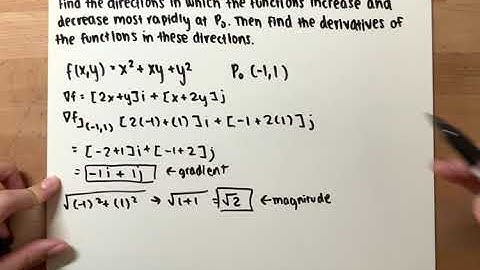 Find the directions in which the functions increase and
decrease most rapidly at P₀. Then find the derivatives of
the functions in these directions.
f(x,y) = x² + xy + y² P₀ (-1,1)
∇f = [2x+y]i + [x+2y]j
∇f](-1,1) [2(-1)+(1)]i + [-1+2(1)]j
= [-2+1]i + [-1+2]j
= -1i + 1j ← gradient
√(-1)²+(1)² → √1+1 = √2 ← magnitude